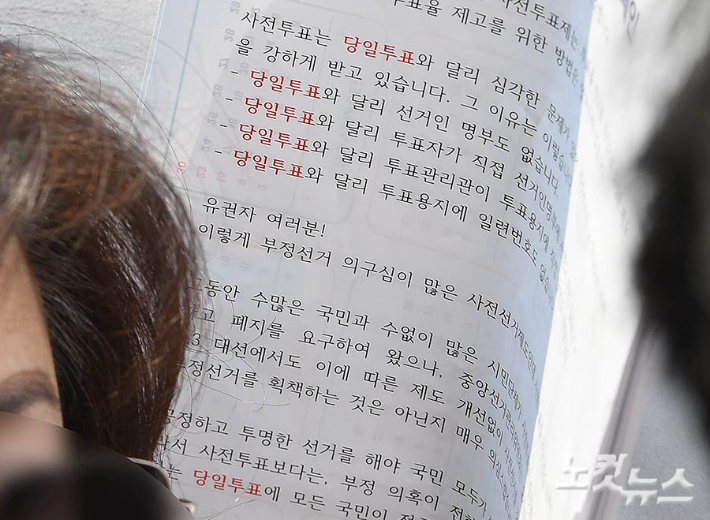 사전투표제는
투표율 제고를 위한 방법은
사전투표는 당일투표와 달리 심각한 문제가
을 강하게 받고 있습니다. 그 이유는 이렇습니다
- 당일투표와 달리 선거인 명부도 없습니다.
- 당일투표와 달리 투표자가 직접 선거인명부에
- 당일투표와 달리 투표관리관이 투표용지에
- 당일투표와 달리 투표용지에 일련번호도
유권자 여러분!
이렇게 부정선거 의구심이 많은 사전선거제도
그동안 수많은 국민과 수없이 많은 시민단체가
고 폐지를 요구하여 왔으나, 중앙선거관리
3 대선에서도 이에 따른 제도 개선없이
부정선거를 획책하는 것은 아닌지 매우
공정하고 투명한 선거를 해야 국민 모두가
서 사전투표보다는, 부정 의혹이 전혀
는 당일투표에 모든 국민이
노컷뉴스